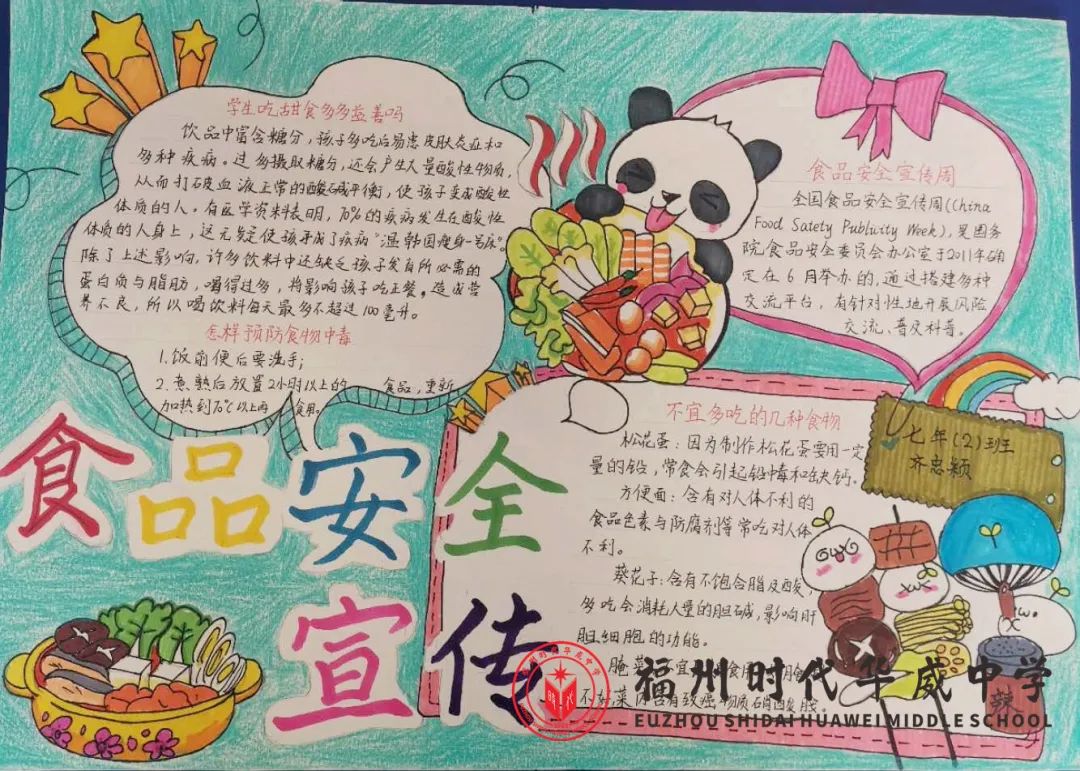 学生吃甜食多多益善吗
饮品中富含糖分，孩子多吃后易患皮肤炎症和
多种疾病。过多摄取糖分，还会产生大量酸性物质，
从而打破血液正常的酸碱平衡，使孩子变成酸性
体质的人。有医学资料表明，70%的疾病发生在酸性
体质的人身上，这无疑使孩子成了疾病"温韩国瘦身一号床"。
除了上述影响，许多饮料中还缺乏孩子发育所必需的
蛋白质与脂肪，喝得过多，将影响孩子吃正餐。造成营
养不良，所以喝饮料每天最多不超过100毫升。
怎样预防食物中毒
1.饭前便后要洗手；
2.煮熟后放置2小时以上的 食品，重新
加热到70℃以上再 食用。
食品安全宣传周
全国食品安全宣传周(China
Food Satety Publuity Week)，是国务
院食品安全委员会办公室于2011年确
定在6月举办的，通过搭建多种
交流平台，有针对性地开展风险
交流、普及科普。
不宜多吃的几种食物
松花蛋：因为制作松花蛋要用一定
量的铅，常食会引起铅中毒和缺钙。
方便面：含有对人体不利的
食品色素与防腐剂等常吃对人体
不利。
葵花子：含有不饱合脂及酸，
多吃会消耗大量的胆碱，影响肝
胆细胞的功能。
腌菜 不宜 食用
不好菜 含有致癌物质硝酸胺
七年(2)班
齐忠颖
食品安全
宣传
辣
福州时代华威中学
FUZHOU SHIDAI HUAWEI MIDDLE SCHOOL